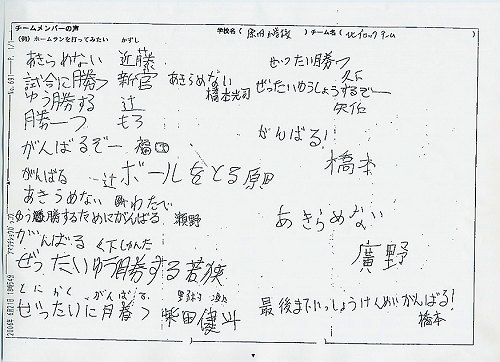 チームメンバーの声
学校名( 原田小学校 )チーム名(
(例)ホームランを打ってみたい かずし
あきらめない 近藤
試合に勝つ 新宮
あきらめない 橋本光司
ゆう勝する 辻
月券一つ もろ
がんばるぞー 福田
がんばる 辻
ボールをとる 原田
あきらめない わたで
ゆう勝するためにがんばる 瀬野
がんばる くましゅんた
ぜったいゆう勝する 若狭
とにかく、がんばる。
ぜったいに月券つ 柴田健斗
ぜったい勝つ
ぜったいゆうしょうするぞー
矢佐
がんばる!
橋本
あきらめない
廣野
最後までいっしょうけんめいがんばる!
橋本